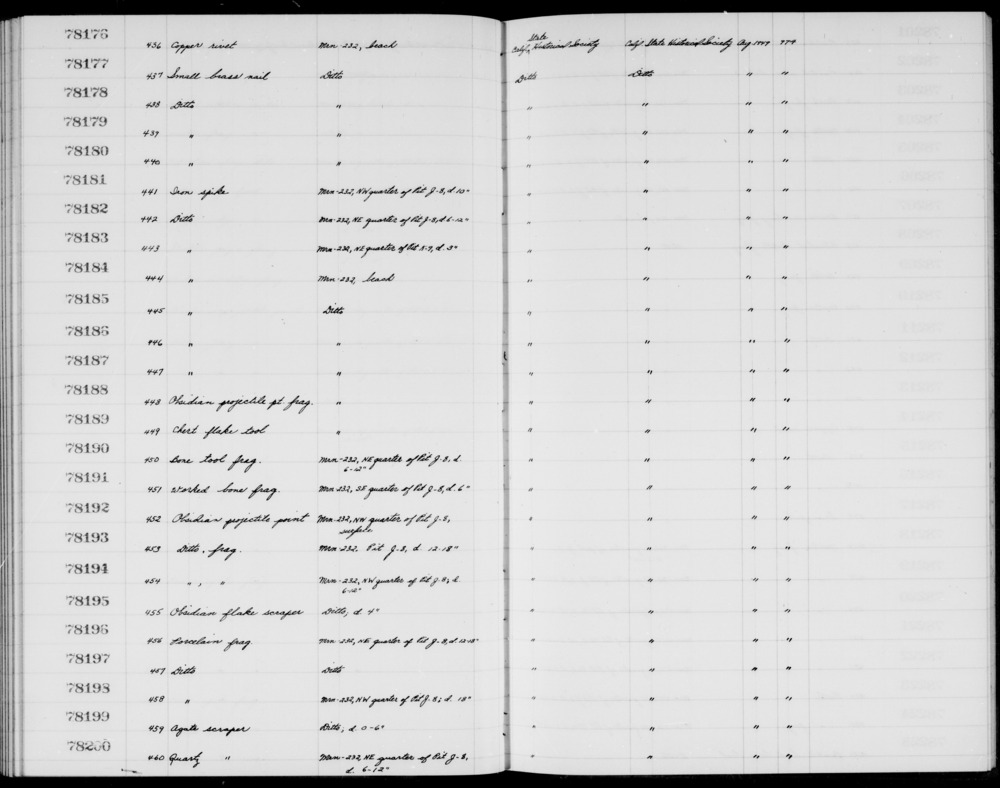 78176 436 Copper rivet Mrn-232, beach Calif. State Historical Society Calif State Historical Society Aug. 1949 974
78177 437 Small brass nail Ditto Ditto Ditto " "
78178 438 Ditto " " " " "
78179 439 " " " " " "
78180 440 " " " " " "
78181 441 Iron spike Mrn-232, NW quarter of Pit J-8, d. 10" " " " "
78182 442 Ditto Mrn-232, NE quarter of Pit J-8, d 6-12" " " " "
78183 443 " Mrn-232, NE quarter of Pit , d. 3" " " " "
78184 444 " Mrn-232, beach " " " "
78185 445 " Ditto " " " "
78186 446 " " " " " "
78187 447 " " " " " "
78188 448 Obsidian projectile pt. frag. " " " " "
78189 449 Chert flake tool " " " " "
78190 450 Bone tool frag. Mrn-232, NE quarter of Pit J-8, d. " " " "
6-12"
78191 451 Worked bone frag. Mrn-232, SE quarter of Pit J-8, d. 6" " " " "
78192 452 Obsidian projectile point Mrn-232, NW quarter of Pit J-8, " " " "
surface
78193 453 Ditto, frag. Mrn-232, Pit J-8, d. 12-18" " " " "
78194 454 " , " Mrn-232, NW quarter of Pit J-8, d. " " " "
6-12"
78195 455 Obsidian flake scraper Ditto, d. 4" " " " "
78196 456 Porcelain frag. Mrn-232, NE quarter of Pit J-8, d. 12-18" " " " "
78197 457 Ditto Ditto " " " "
78198 458 " Mrn-232, NW quarter of Pit J-8; d. 18" " " " "
78199 459 Agate scraper Ditto; d. 0-6" " " " "
78200 460 Quartz " Mrn-232, NE quarter of Pit J-8, " " " "
d. 6-12"